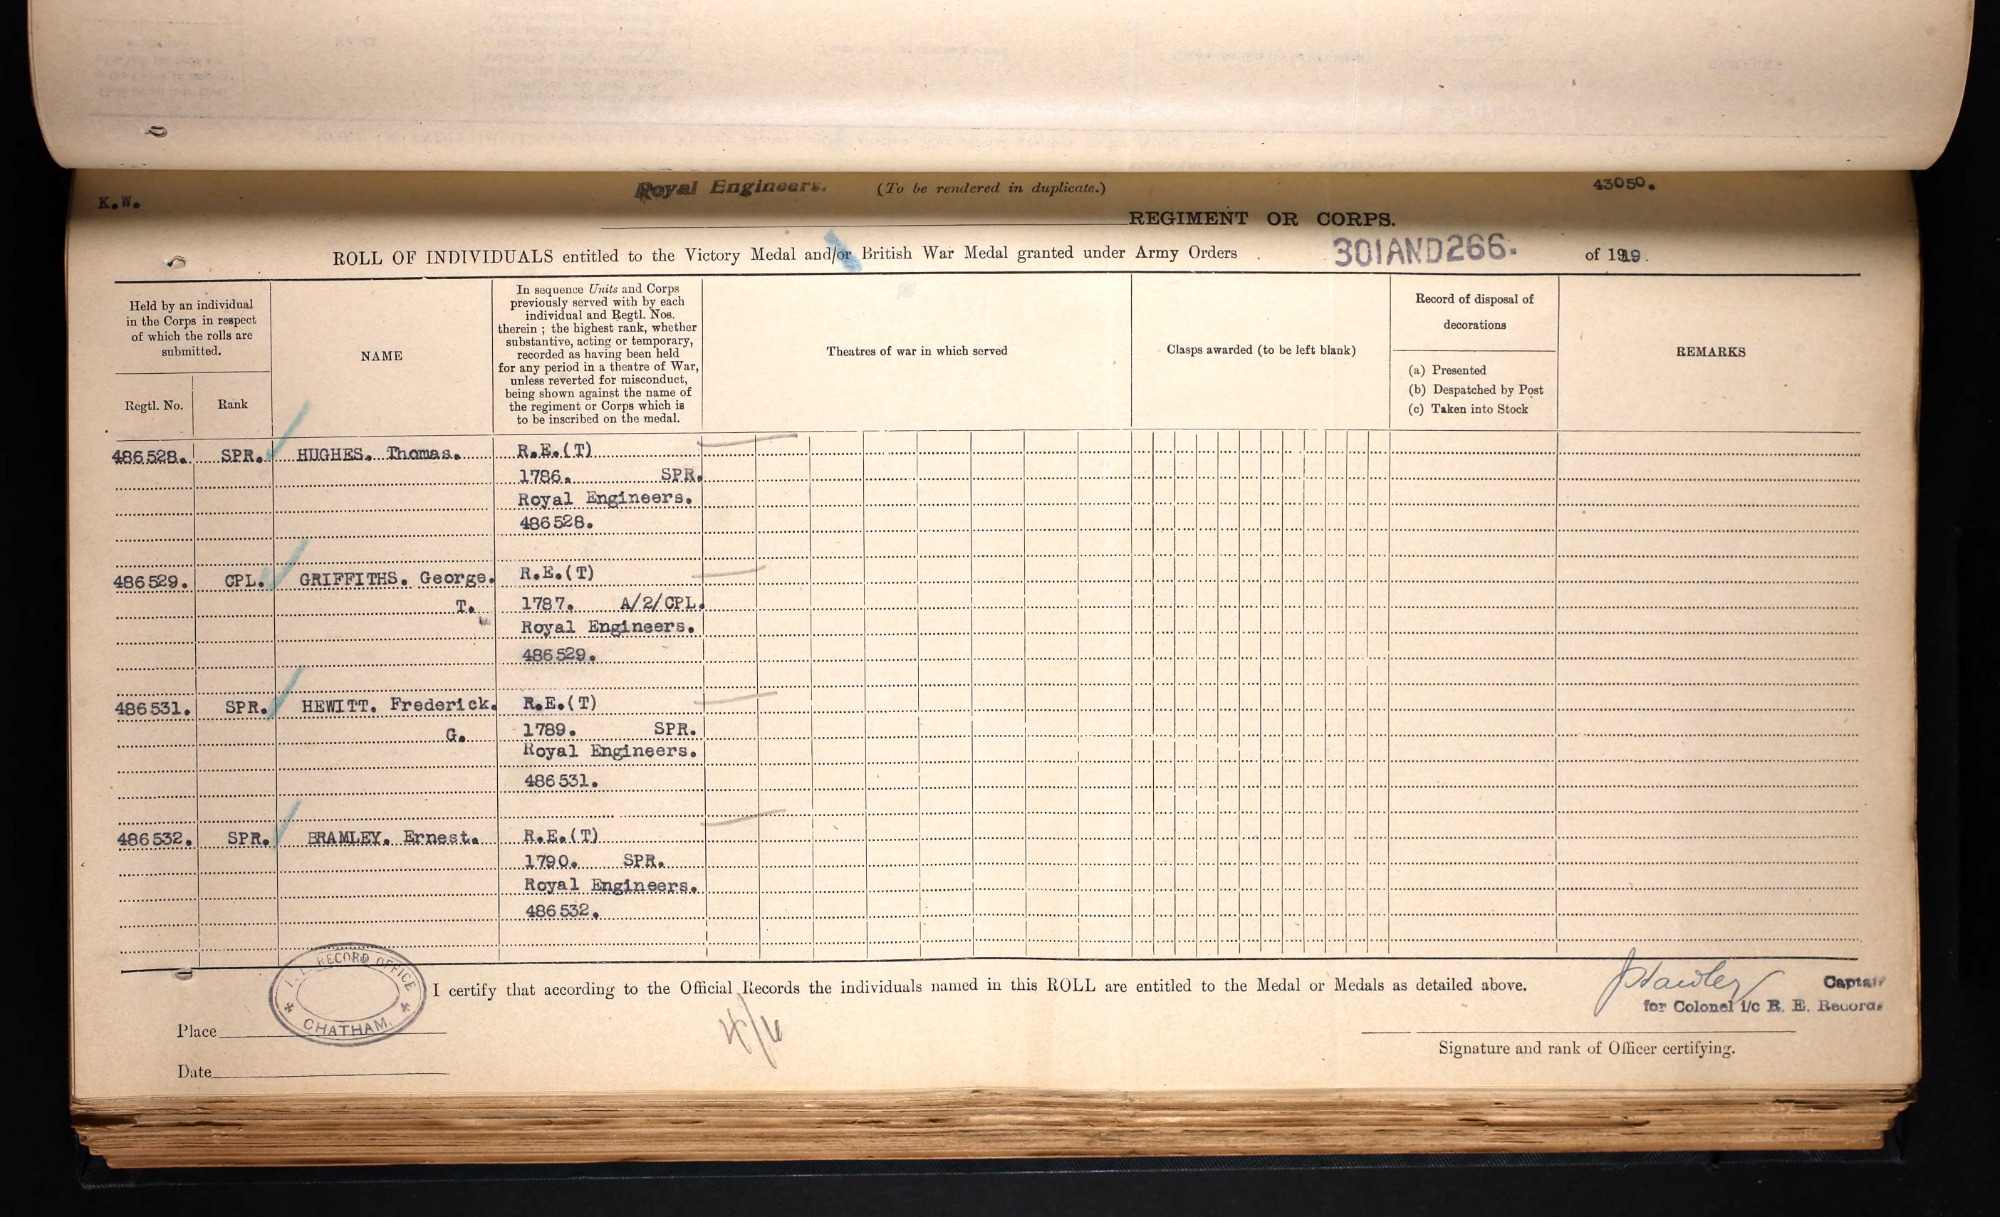 K.W.
Royal Engineers. (To be rendered in duplicate.) 43050.
REGIMENT OR CORPS.
ROLL OF INDIVIDUALS entitled to the Victory Medal and/or British War Medal granted under Army Orders 301AND266. of 1919.
Held by an individual
in the Corps in respect
of which the rolls are
submitted.
Regtl. No.
Rank
NAME
In sequence Units and Corps
previously served with by each
individual and Regtl. Nos.
therein ; the highest rank, whether
substantive, acting or temporary,
recorded as having been held
for any period in a theatre of War,
unless reverted for misconduct,
being shown against the name of
the regiment or Corps which is
to be inscribed on the medal.
Theatres of war in which served
Clasps awarded (to be left blank)
Record of disposal of
decorations
(a) Presented
(b) Despatched by Post
(c) Taken into Stock
REMARKS
486528. SPR. HUGHES. Thomas. R.E.(T)
1786. SPR.
Royal Engineers.
486528.
486529. CPL. GRIFFITHS. George. R.E.(T)
T. 1787. A/2/CPL.
Royal Engineers.
486529.
486531. SPR. HEWITT. Frederick. R.E.(T)
G. 1789. SPR.
Royal Engineers.
486531.
486532. SPR. BRAMLEY. Ernest. R.E.(T)
1790. SPR.
Royal Engineers.
486532.
RECORD OFFICE
CHATHAM.
I certify that according to the Official Records the individuals named in this ROLL are entitled to the Medal or Medals as detailed above.
Captain
for Colonel i/c R. E. Records
Place
Signature and rank of Officer certifying.
Date